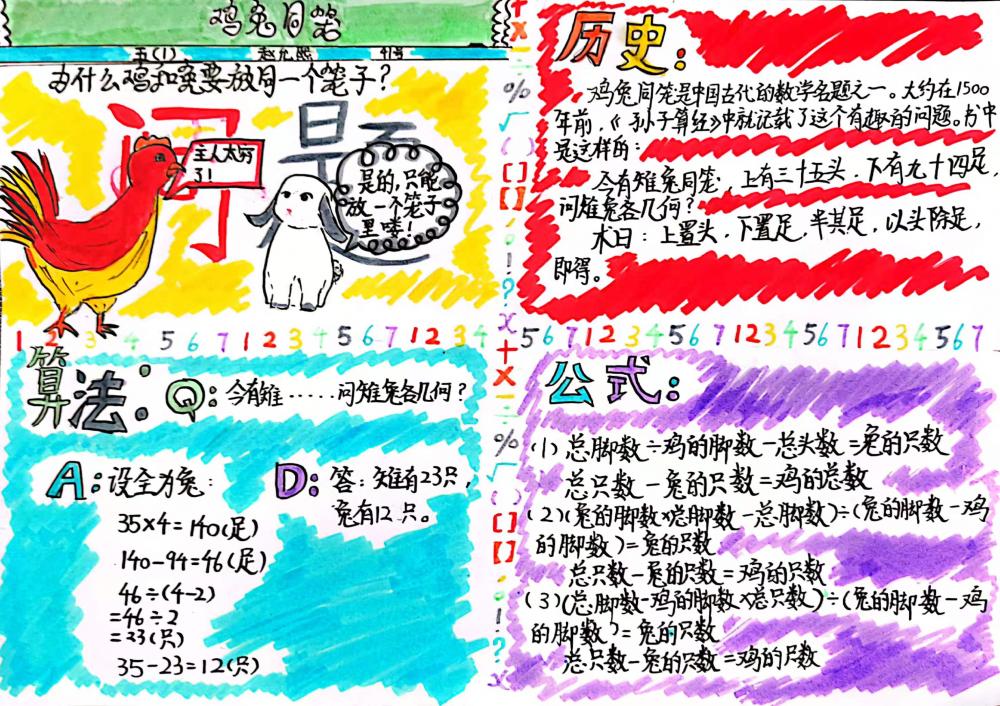 鸡兔同笼
五(1) 赵允熙 41号
为什么鸡和兔要放同一个笼子?
问题
主人太穷
了!
是的,只能
放一个笼子
里喽!
历史:
鸡兔同笼是中国古代的数学名题之一。大约在1500
年前,《孙子算经》中就记载了这个有趣的问题。书中
是这样的:
今有雉兔同笼,上有三十五头,下有九十四足,
问雉兔各几何?
术曰:上置头,下置足,半其足,以头除足,
即得。
+
×
÷
%
√
()
[]
[]
,
。
!
?
x
1 2 3 4 5 6 7 1 2 3 4 5 6 7 1 2 3 4 5 6 7 1 2 3 4 5 6 7 1 2 3 4 5 6 7
+
×
÷
%
√
()
[]
[]
,
。
!
?
x
算法:
Q:今有雉……问雉兔各几何?
A:设全为兔:
35×4=140(足)
140-94=46(足)
46÷(4-2)
=46÷2
=23(只)
35-23=12(只)
D:答:雉有23只,
兔有12只。
公式:
(1)总脚数÷鸡的脚数-总头数=兔的只数
总只数-兔的只数=鸡的总数
(2)(兔的脚数×总脚数-总脚数)÷(兔的脚数-鸡
的脚数)=兔的只数
总只数-兔的只数=鸡的只数
(3)(总脚数-鸡的脚数×总只数)÷(兔的脚数-鸡
的脚数)=兔的只数
总只数-兔的只数=鸡的只数